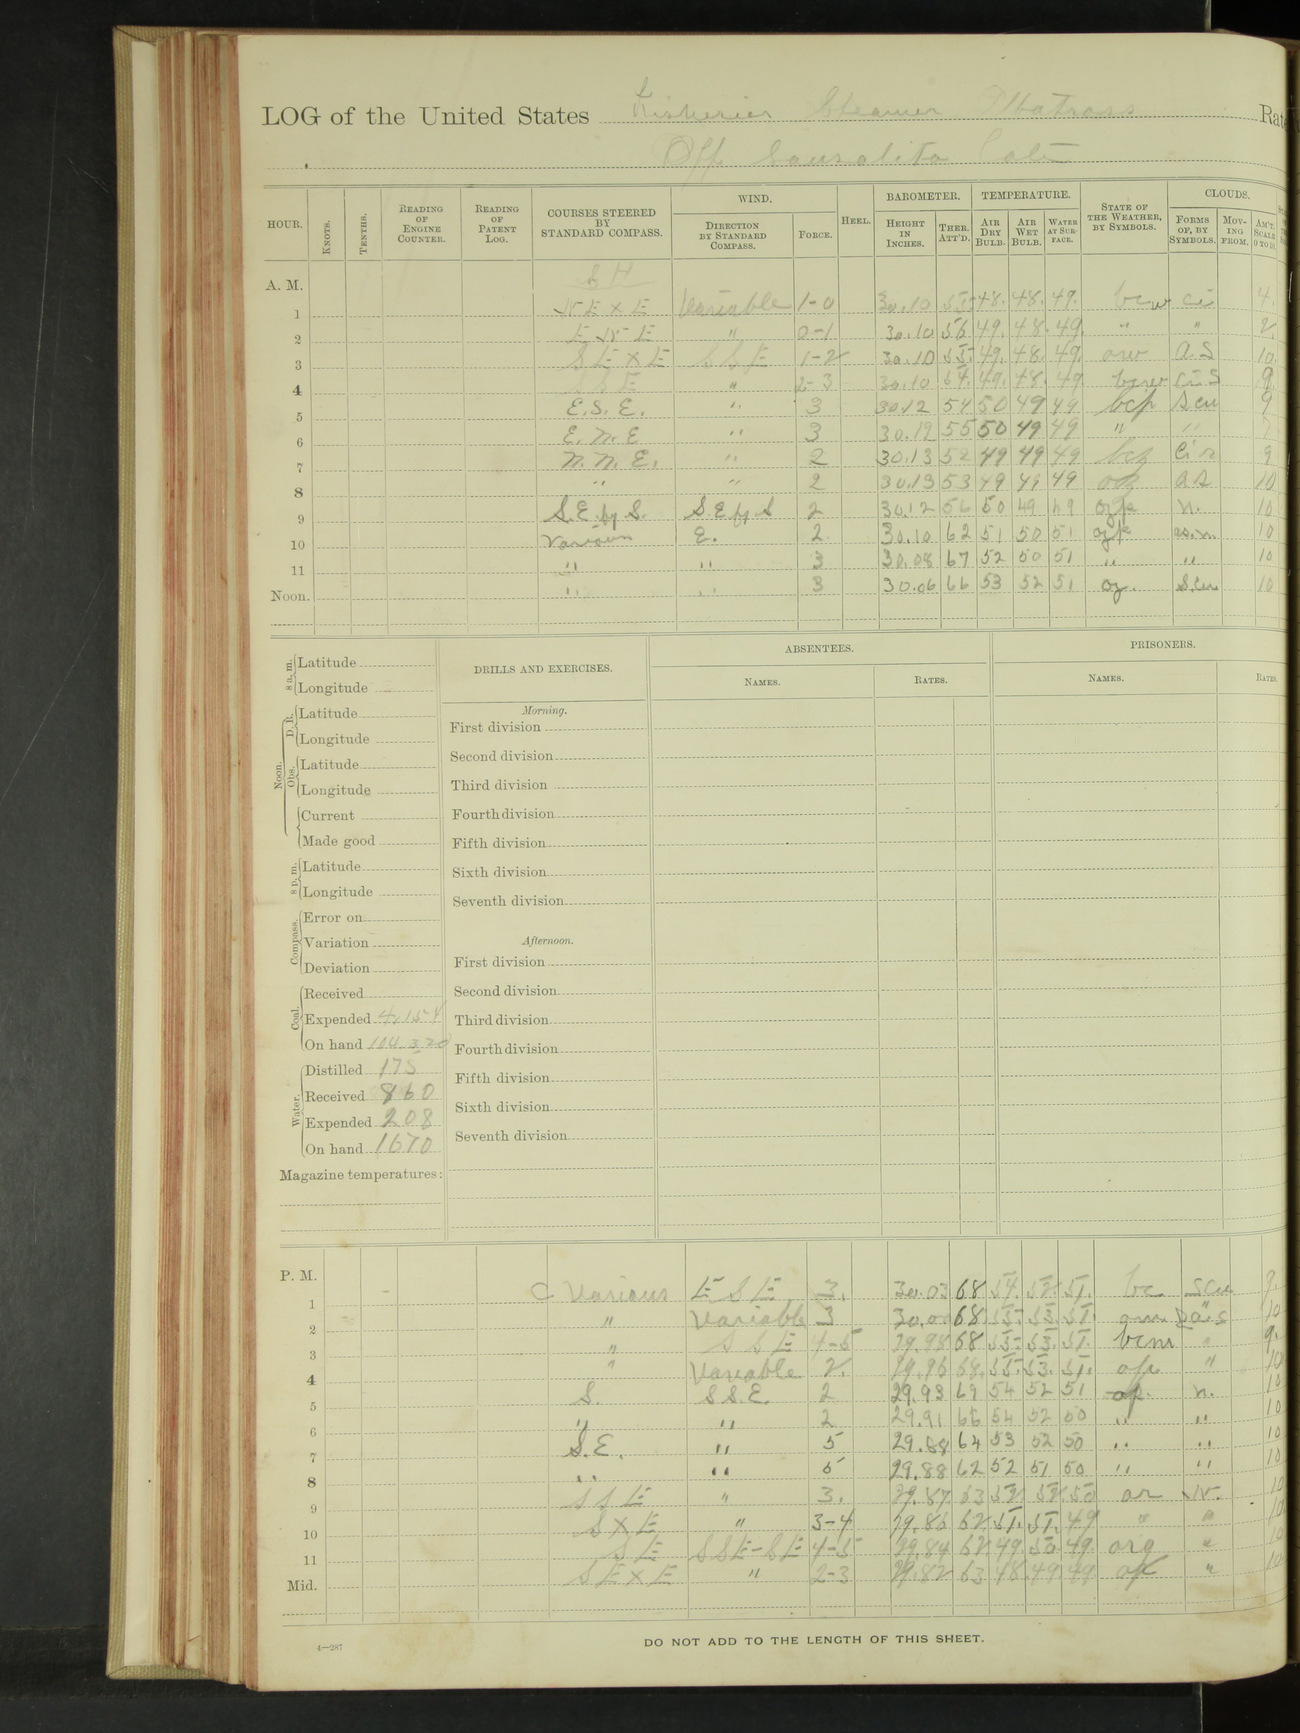 LOG of the United States Fisheries Steamer Albatross Rate
Off Sausalito Cal
HOUR. KNOTS. TENTHS. READING OF ENGINE COUNTER. READING OF PATENT LOG. COURSES STEERED BY STANDARD COMPASS. WIND. DIRECTION BY STANDARD COMPASS. FORCE. HEEL. BAROMETER. HEIGHT IN INCHES. THER. ATT'D. TEMPERATURE. AIR DRY BULB. AIR WET BULB. WATER AT SURFACE. STATE OF THE WEATHER, BY SYMBOLS. CLOUDS. FORMS OF, BY SYMBOLS. MOVING FROM. AM'T. SCALE 0 TO 10.
A. M.
1 NE x E Variable 1-0 30.10 55 48. 48. 49. bcw ci 4.
2 " 0-1 30.10 56 49. 48. 49. " " 2
3 SE x E SSE 1-2 30.10 55 49. 48. 49. a.s 10.
4 SSE " 2-3 30.10 54. 49. 48. 49. 9.
5 E.S.E. " 3 30.12 54 50 49 49 bcp s.cu 9
6 E.N.E " 3 30.12 55 50 49 49 " "
7 N.N.E. " 2 30.13 52 49 49 49 9
8 " " 2 30.13 53 49 49 49 a.s 10
9 S.E. by S. S.E by S 2 30.12 56 50 49 49 n. 10
10 Various E. 2 30.10 62 51 50 51 10
11 " " 3 30.08 67 52 50 51 " " 10
Noon. " " 3 30.06 66 53 52 51 oz. S.cu 10
8 a. m. Latitude
Longitude
Noon. D. R. Latitude
Longitude
Obs. Latitude
Longitude
Current
Made good
8 p. m. Latitude
Longitude
Compass. Error on
Variation
Deviation
Coal. Received
Expended 4,154
On hand 104 320
Water. Distilled 175
Received 860
Expended 208
On hand 1670
Magazine temperatures:
DRILLS AND EXERCISES.
Morning.
First division
Second division
Third division
Fourth division
Fifth division
Sixth division
Seventh division
Afternoon.
First division
Second division
Third division
Fourth division
Fifth division
Sixth division
Seventh division
ABSENTEES.
NAMES. RATES.
PRISONERS.
NAMES. RATES.
P. M.
1 C Various ESE 3. 30.03 68 54. 52. 51. bc scu 9.
2 " Variable 3 30.00 68. 55. 53. 51. 10
3 " SSE 4-5 29.98 68 55. 53. 51. bcm " 9.
4 " Variable 2. 29.96 68. 55. 53. 51. op " 10
5 S. S.S.E. 2 29.93 69 54 52 51 op. n. 10
6 " " 2 29.91 66 54 52 50 " " 10
7 S.E. " 5 29.88 64 53 52 50 " " 10
8 " " 5 29.88 62 52 51 50 " " 10
9 SSE " 3. 29.87 63 52 52. 50 or N. 10
10 S x E " 3-4 29.86 62 51. 51. 49 " " 10
11 SE SSE-SE 4-5 29.84 62. 49. 50. 49. orq " 10
Mid. SE x E " 2-3 29.82 63 48. 49. 49. " 10
4—287
DO NOT ADD TO THE LENGTH OF THIS SHEET.